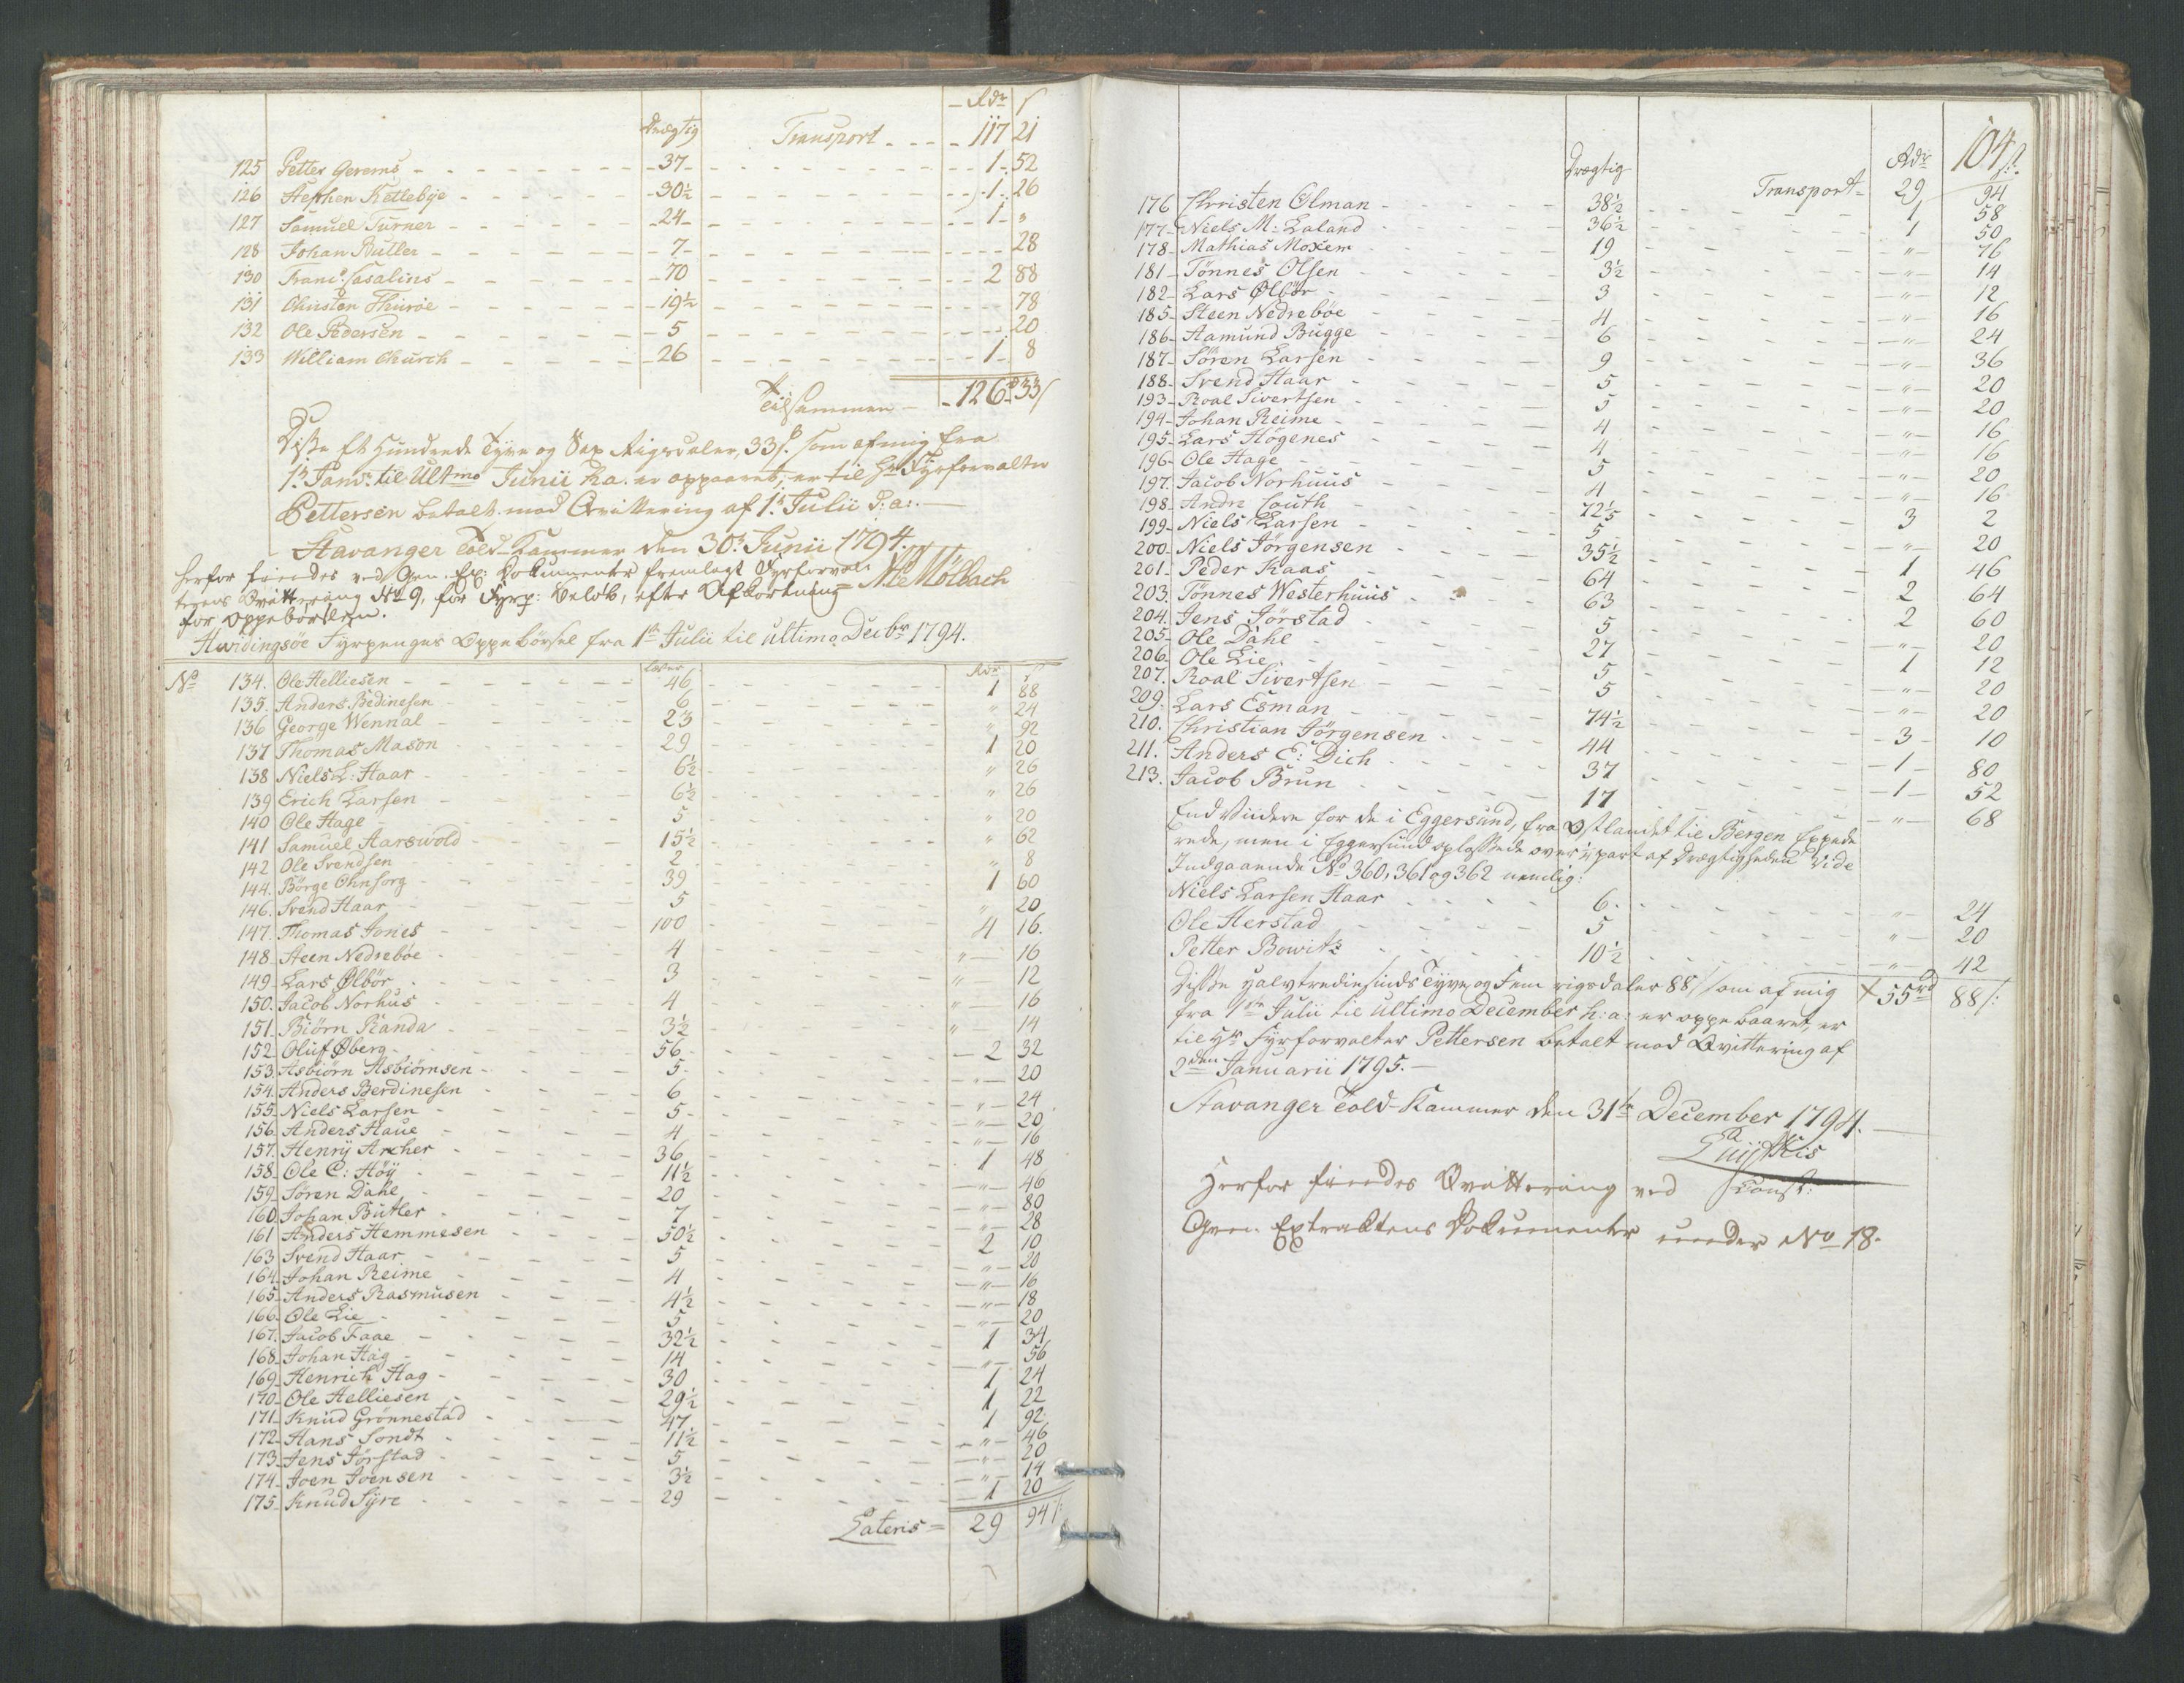 Rdr ß
Drægtig Transport 117 21
125 Petter Gerems 37 1 52
126 Stephen Kettlebye 30½ 1 26
127 Samuel Turner 24 1 "
128 Johan Butler 7 28
130 Casalins 70 2 88
131 Christen 19½ 78
132 Ole Pedersen 5 20
133 William Church 26 1 8
Tilsammen 126 33ß
Disse Et Hundrede Tyve og Sex Rigsdaler, 33ß. som af mig fra
1te Janr. til Ultmo Junii h.a. er oppebaaret, er til Hr Fyrforvalter
Pettersen betalt mod Qvittering af 1te Julii d:a:
Stavanger Told-Kammer den 30te Junii 1794.
Herfor findes ved Gen. Ex: Dokumenter fremlagt Fyrforval-
terens Qvittering No 9, for Fyrp: Beløb, efter Afkortning Mølbach
for Oppebørselen.
Hvidingsøe Fyrpenges Oppebørsel fra 1te Julii til ultimo Decbr 1794.
No Læster Rdr ß
134. Ole Helliesen 46 1 88
135. Anders Bedinesen 6 " 24
136 George Wennal 23 " 92
137 Thomas Mason 29 1 20
138 Niels L: Haar 6½ " 26
139 Erich Larsen 6½ " 26
140 Ole Hage 5 " 20
141 Samuel Aarswold 15½ " 62
142 Ole Svendsen 2 " 8
144. Börge Ohnsorg 39 1 60
146. Svend Haar 5 " 20
147. Thomas Jones 100 4 16.
148. Steen Nedrebøe 4 " 16
149. Lars Ølbör 3 " 12
150. Jacob Norhus 4 " 16
151. Biörn Randa 3½ " 14
152. Oluf Øberg 56 2 32
153. Asbiörn Asbiörnsen 5 " 20
154. Anders Berdinesen 6 " 24
155. Niels Larsen 5 " 20
156. Anders Haue 4 " 16
157. Henry Archer 36 1 48
158. Ole C: Höy 11½ " 46
159. Sören Dahl 20 " 80
160. Johan Butler 7 " 28
161 Anders Hemmesen 50½ 2 10
163 Svend Haar 5 " 20
164. Johan Reime 4 " 16
165. Anders Rasmusen 4½ " 18
166. Ole Lie 5 " 20
167. Jacob Faae 32½ 1 34
168. Johan Hag 14 " 56
169. Henrich Hag 30 1 24
170. Ole Helliesen 29½ 1 22
171. Knud Grönnestad 47 1 92
172. Hans Sondt 11½ " 46
173. Jens Jörstad 5 " 20
174. Joen Joensen 3½ " 14
175. Knud Syre 29 1 20
Lateris 29 94ß
104
Drægtig Rdr ß
Transport 29 94
176 Christen Olman 38½ 1 58
177. Niels M: Laland 36½ 1 50
178. Mathias Moxem 19 " 76
181. Tönnes Olsen 3½ " 14
182. Lars Ølbör 3 " 12
185. Steen Nedrebøe 4 " 16
186. Aamund Bugge 6 " 24
187. Sören Larsen 9 " 36
188. Svend Haar 5 " 20
193. Roal Sivertsen 5 " 20
194. Johan Reime 4 " 16
195. Lars Högenes 4 " 16
196. Ole Hage 5 " 20
197. Jacob Norhuus 4 " 16
198. Andre Couth 72½ 3 2
199. Niels Larsen 5 " 20
200. Niels Jörgensen 35½ 1 46
201. Peder Kaas 64 2 64
203. Tönnes Westerhuus 63 2 60
204. Jens Jörstad 5 " 20
205. Ole Dahl 27 1 12
206. Ole Lie 5 " 20
207. Roal Sivertsen 5 " 20
209. Lars Esman 74½ 3 10
210. Christian Jörgensen 44 1 80
211. Anders E: Dich 37 1 52
213. Jacob Brun 17 " 68
End Viidere for de i Eggersund, fra Østlandet til Bergen Expede
rede, men i Eggersund oplossede over ¼ part af Drægtigheden Vide
Indgaaende No 360, 361 og 362 nemlig:
Niels Larsen Haar 6 " 24
Ole Herstad 5 " 20
Petter Bowitz 10½ " 42
Disse Halvtrediesinds Tyve og Fem rigsdaler 88ß som af mig 55rd 88ß:
fra 1te Julii til ultimo December h:a: er oppebaaret er
til Hr Fyrforvalter Pettersen betalt mod Qvittering af
2den Januarii 1795.
Stavanger Told-Kammer den 31te December 1794.
Const:
Herfor findes Qvittering ved
Gen. Extraktens Dokumenter under No 18.